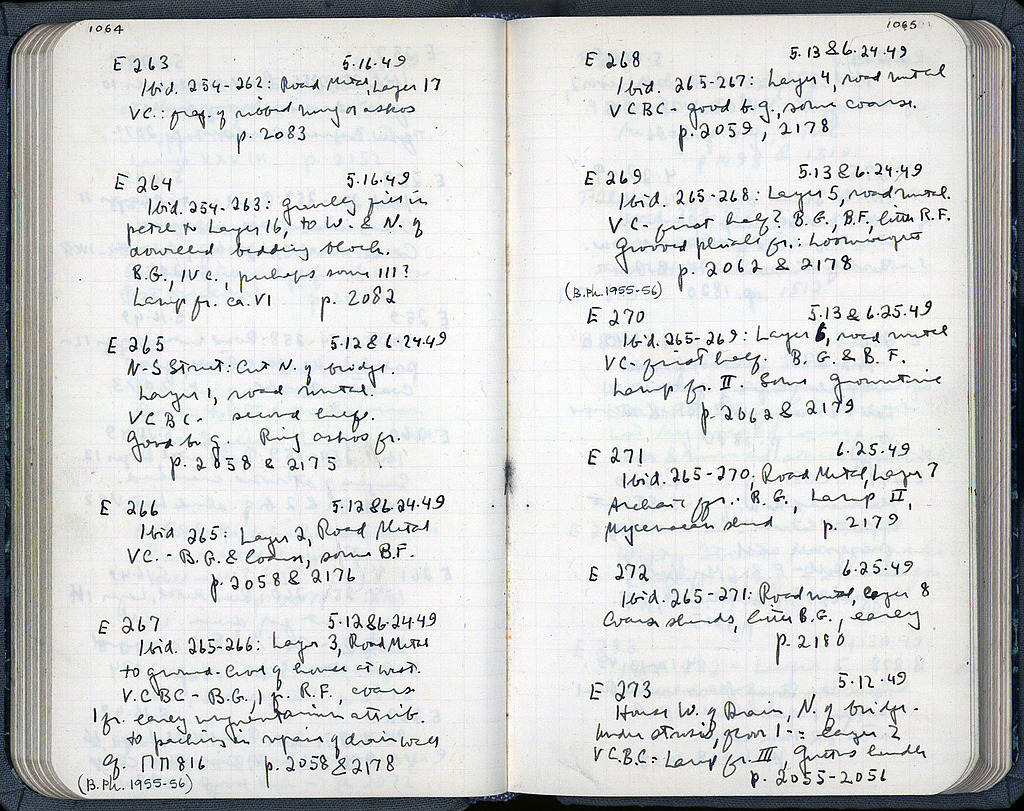 1064
E 263 5.16.49
Ibid. 254-262: Road Metal, Layer 17
VC.: frag. of ribbed ring askos
p. 2083
E 264 5.16.49
Ibid. 254-263: Gravelly fill in
petel to Layer 16, to W. & N. of
dowelled bedding block.
B.G., IV c, perhaps some III?
Lamp fr. ca. VI p. 2082
E 265 5.12 & 6.24.49
N-S Street: Cut N. of bridge.
Layer 1, road metal.
VCBC - second half.
Good b.g. Ring askos fr.
p. 2058 & 2175
E 266 5.12 & 6.24.49
Ibid. 265: Layer 2, Road Metal
VC. - B.G. & Coarse, some B.F.
p. 2058 & 2176
E 267 5.12 & 6.24.49
Ibid. 265-266: Layer 3, Road Metal
to ground-level of house at west.
V.C.BC - B.G., 1 fr. R.F., coarse
1 fr. early attrib.
to packing in repair of drain wall
Cf. ΠΠ 816 p. 2058 & 2178
(B.Ph. 1955-56)
1065
E 268 5.13 & 6.24.49
Ibid. 265-267: Layer 4, road metal
VCBC - good b.g., some coarse.
p. 2059, 2178
E 269 5.13 & 6.24.49
Ibid. 265-268: Layer 5, road metal.
VC - first half? B.G., B.F., little R.F.
Grooved fr.: Loomweight
p. 2062 & 2178
(B.Ph. 1955-56)
E 270 5.13 & 6.25.49
Ibid. 265-269: Layer 6, road metal
VC - first half. B.G. & B.F.
Lamp fr. II. Some
p. 2062 & 2179
E 271 6.25.49
Ibid. 265-270; Road Metal, Layer 7
Archaic fr.: B.G., Lamp II,
Mycenaean sherd p. 2179
E 272 6.25.49
Ibid. 265-271: Road metal, layer 8
Coarse sherds, little B.G., early
p. 2180
E 273 5.12.49
House W. of Drain, N. of bridge.
Under strosis, floor 1 -: layer 2
VC.B.C. - Lamp fr. III,
p. 2055-2056